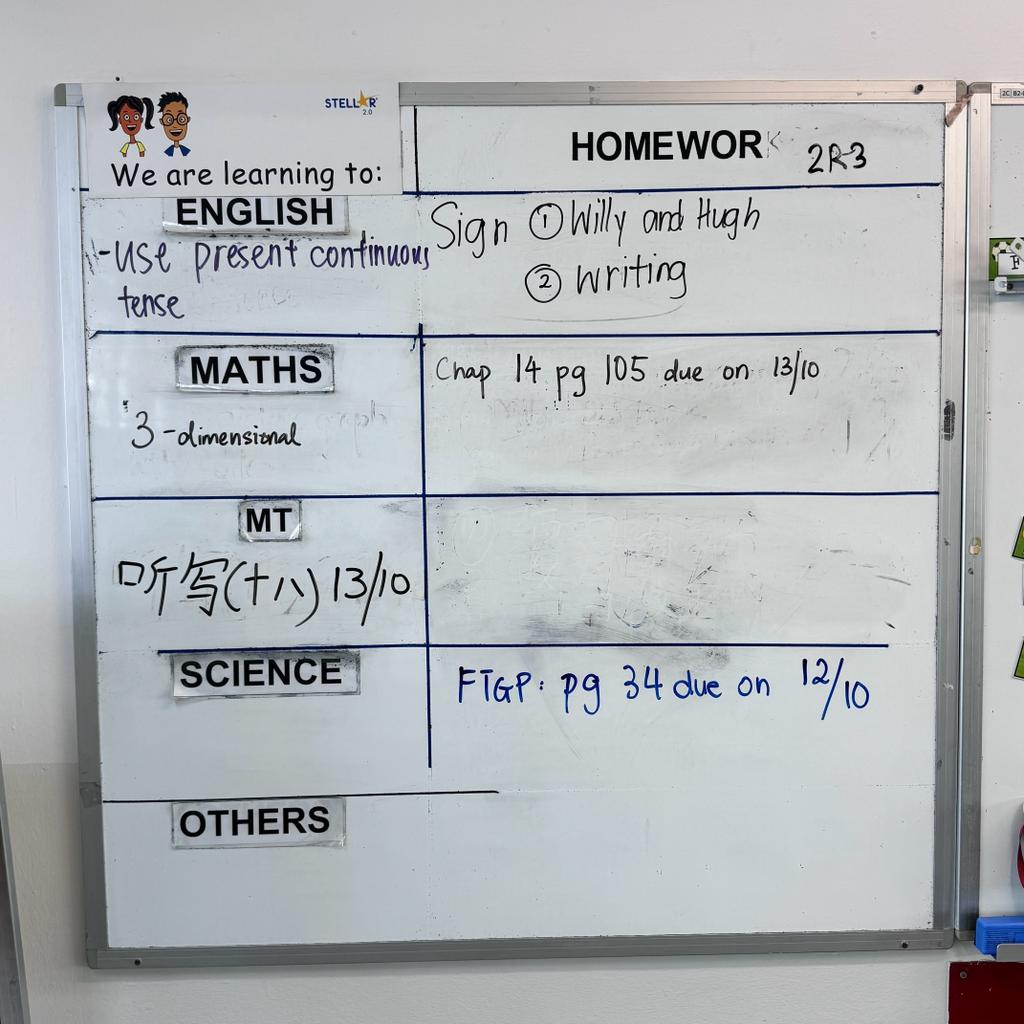 STELLAR 2.0
We are learning to:
HOMEWORK 2R3
ENGLISH
-Use present continuous
tense
Sign ① Willy and Hugh
② Writing
MATHS
3-dimensional
Chap 14 pg 105 due on 13/10
MT
听写(十八) 13/10
SCIENCE
FTGP: pg 34 due on 12/10
OTHERS